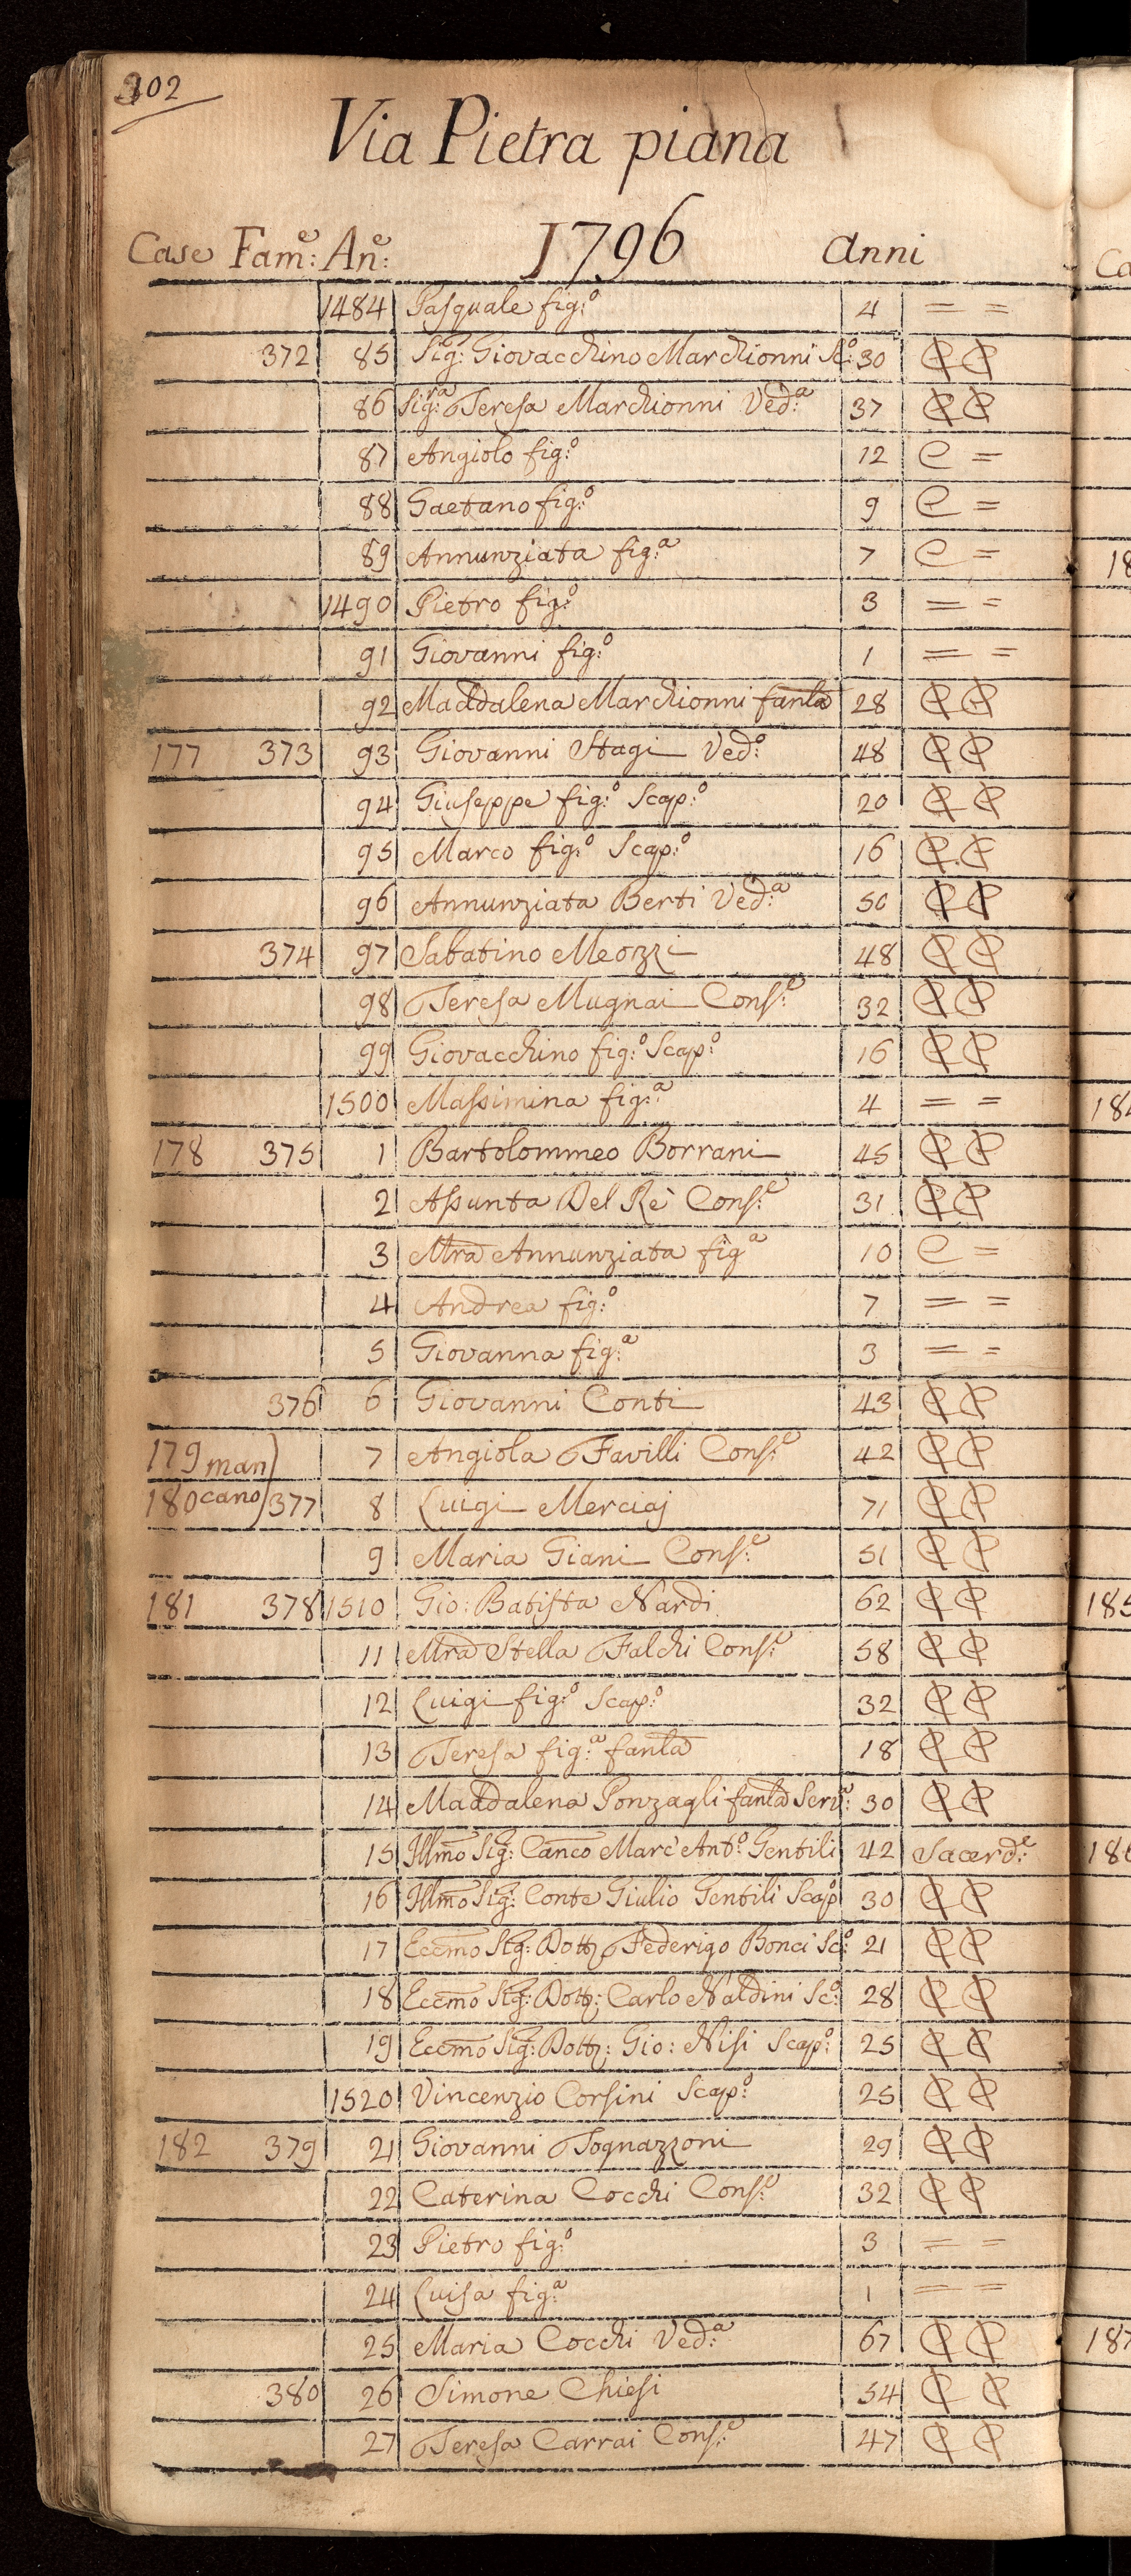 102
Via Pietra piana
Case Fam:e An:e 1796 Anni
1484 Pasquale fig:o 4 = =
372 85 Sig: Giovacchino Marchionni Sc:o 30 C C
86 Sig:a Teresa Marchionni Ved:a 37 C C
87 Angiolo fig:o 12 C =
88 Gaetano fig:o 9 C =
89 Annunziata fig:a 7 C =
1490 Pietro fig:o 3 = =
91 Giovanni fig:o 1 = =
92 Maddalena Marchionni fanla 28 C C
177 373 93 Giovanni Stagi Ved:o 48 C C
94 Giuseppe fig:o Scap:o 20 C C
95 Marco fig:o Scap:o 16 C C
96 Annunziata Berti Ved:a 50 C C
374 97 Sabatino Meozzi 48 C C
98 Teresa Mugnai Cons:e 32 C C
99 Giovacchino fig:o Scap:o 16 C C
1500 Massimina fig:a 4 = =
178 375 1 Bartolommeo Borrani 45 C C
2 Assunta Del Rè Cons:e 31 C C
3 Mra Annunziata fig:a 10 C =
4 Andrea fig:o 7 = =
5 Giovanna fig:a 3 = =
376 6 Giovanni Conti 43 C C
179 man) 7 Angiola Favilli Cons:e 42 C C
180 cano) 377 8 Luigi Merciaj 71 C C
9 Maria Giani Cons:e 51 C C
181 378 1510 Gio: Batista Nardi 62 C C
11 Mra Stella Falchi Cons:e 58 C C
12 Luigi fig:o Scap:o 32 C C
13 Teresa fig:a fanla 18 C C
14 Maddalena Ponzagli fanla Serv:a 30 C C
15 Illmo Sig: Canco Marc'Ant:o Gentili 42 Sacerd:e
16 Illmo Sig: Conte Giulio Gentili Scap:o 30 C C
17 Eccmo Sig: Dott: Federigo Bonci Sc:o 21 C C
18 Eccmo Sig: Dott: Carlo Naldini Sc:o 28 C C
19 Eccmo Sig: Dott: Gio: Nisi Scap:o 25 C C
1520 Vincenzio Corsini Scap:o 25 C C
182 379 21 Giovanni Tognazzoni 29 C C
22 Caterina Cocchi Cons:e 32 C C
23 Pietro fig:o 3 = =
24 Luisa fig:a 1 = =
25 Maria Cocchi Ved:a 67 C C
380 26 Simone Chiesi 54 C C
27 Teresa Carrai Cons:e 47 C C